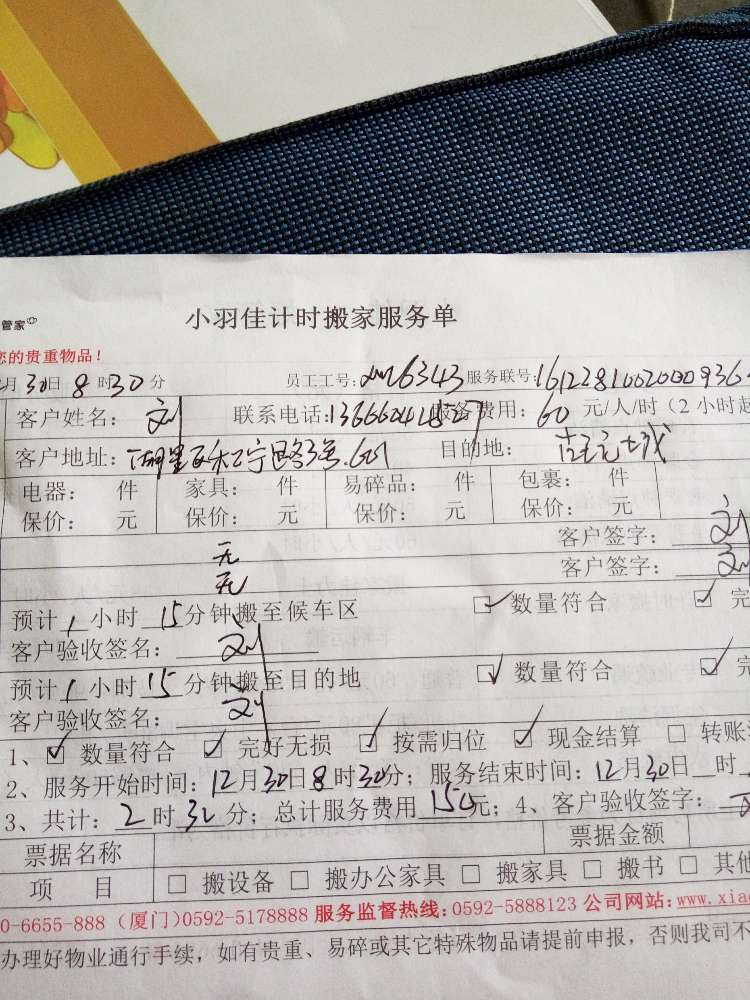 管家
小羽佳计时搬家服务单
您的贵重物品！
月30日8时30分 员工工号：6343 服务联号：
客户姓名：刘 联系电话： 服务费用：60元/人/时（2小时起
客户地址：湖里区 路3号 目的地：
电器： 件 家具： 件 易碎品： 件 包裹： 件
保价： 元 保价： 元 保价： 元 保价： 元
客户签字：刘
无
客户签字：刘
无
预计1小时15分钟搬至候车区 ☑数量符合 ☑完
客户验收签名：刘
预计1小时15分钟搬至目的地 ☑数量符合 ☑完
客户验收签名：刘
1、☑数量符合 ☑完好无损 ☑按需归位 ☑现金结算 □转账
2、服务开始时间：12月30日8时30分；服务结束时间：12月30日 时
3、共计：2时30分；总计服务费用150元；4、客户验收签字：
票据名称 票据金额
项 目 □搬设备 □搬办公家具 □搬家具 □搬书 □其他
0-6655-888（厦门）0592-5178888 服务监督热线：0592-5888123 公司网站：www.xia
办理好物业通行手续，如有贵重、易碎或其它特殊物品请提前申报，否则我司不